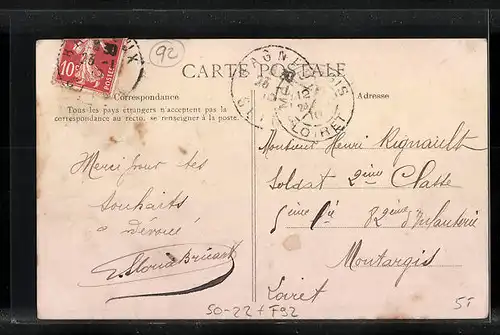 92
10c
POSTES
CARTE POSTALE
LOIRET
Correspondance
Adresse
Tous les pays étrangers n'acceptent pas la
correspondance au recto, se renseigner à la poste.
Merci pour tes
souhaits
Monsieur Henri Rignault
Soldat 2ème Classe
5ème Cie 82ème d'Infanterie
Montargis
Loiret
50-22 + F92
5f